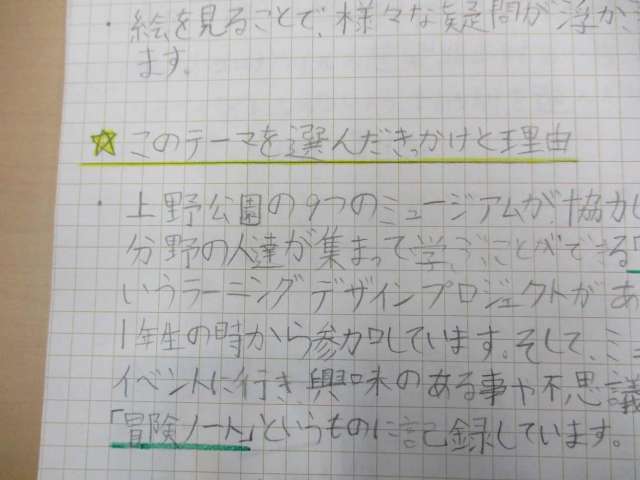 ・絵を見ることで、様々な疑問が浮か
ます。
☆このテーマを選んだきっかけと理由
・上野公園の9つのミュージアムが、協力
分野の人達が集まって学ぶことができる「
いうラーニングデザインプロジェクトがあ
1年生の時から参加しています。そして、ミュ
イベントに行き、興味のある事や不思議
「冒険ノート」というものに記録しています。